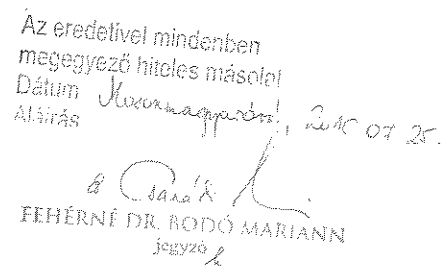 Az eredetivel mindenben
megegyező hiteles másolat
Dátum 07 25.
Aláírás
FEHÉRNÉ DR. BODÓ MARIANN
jegyző